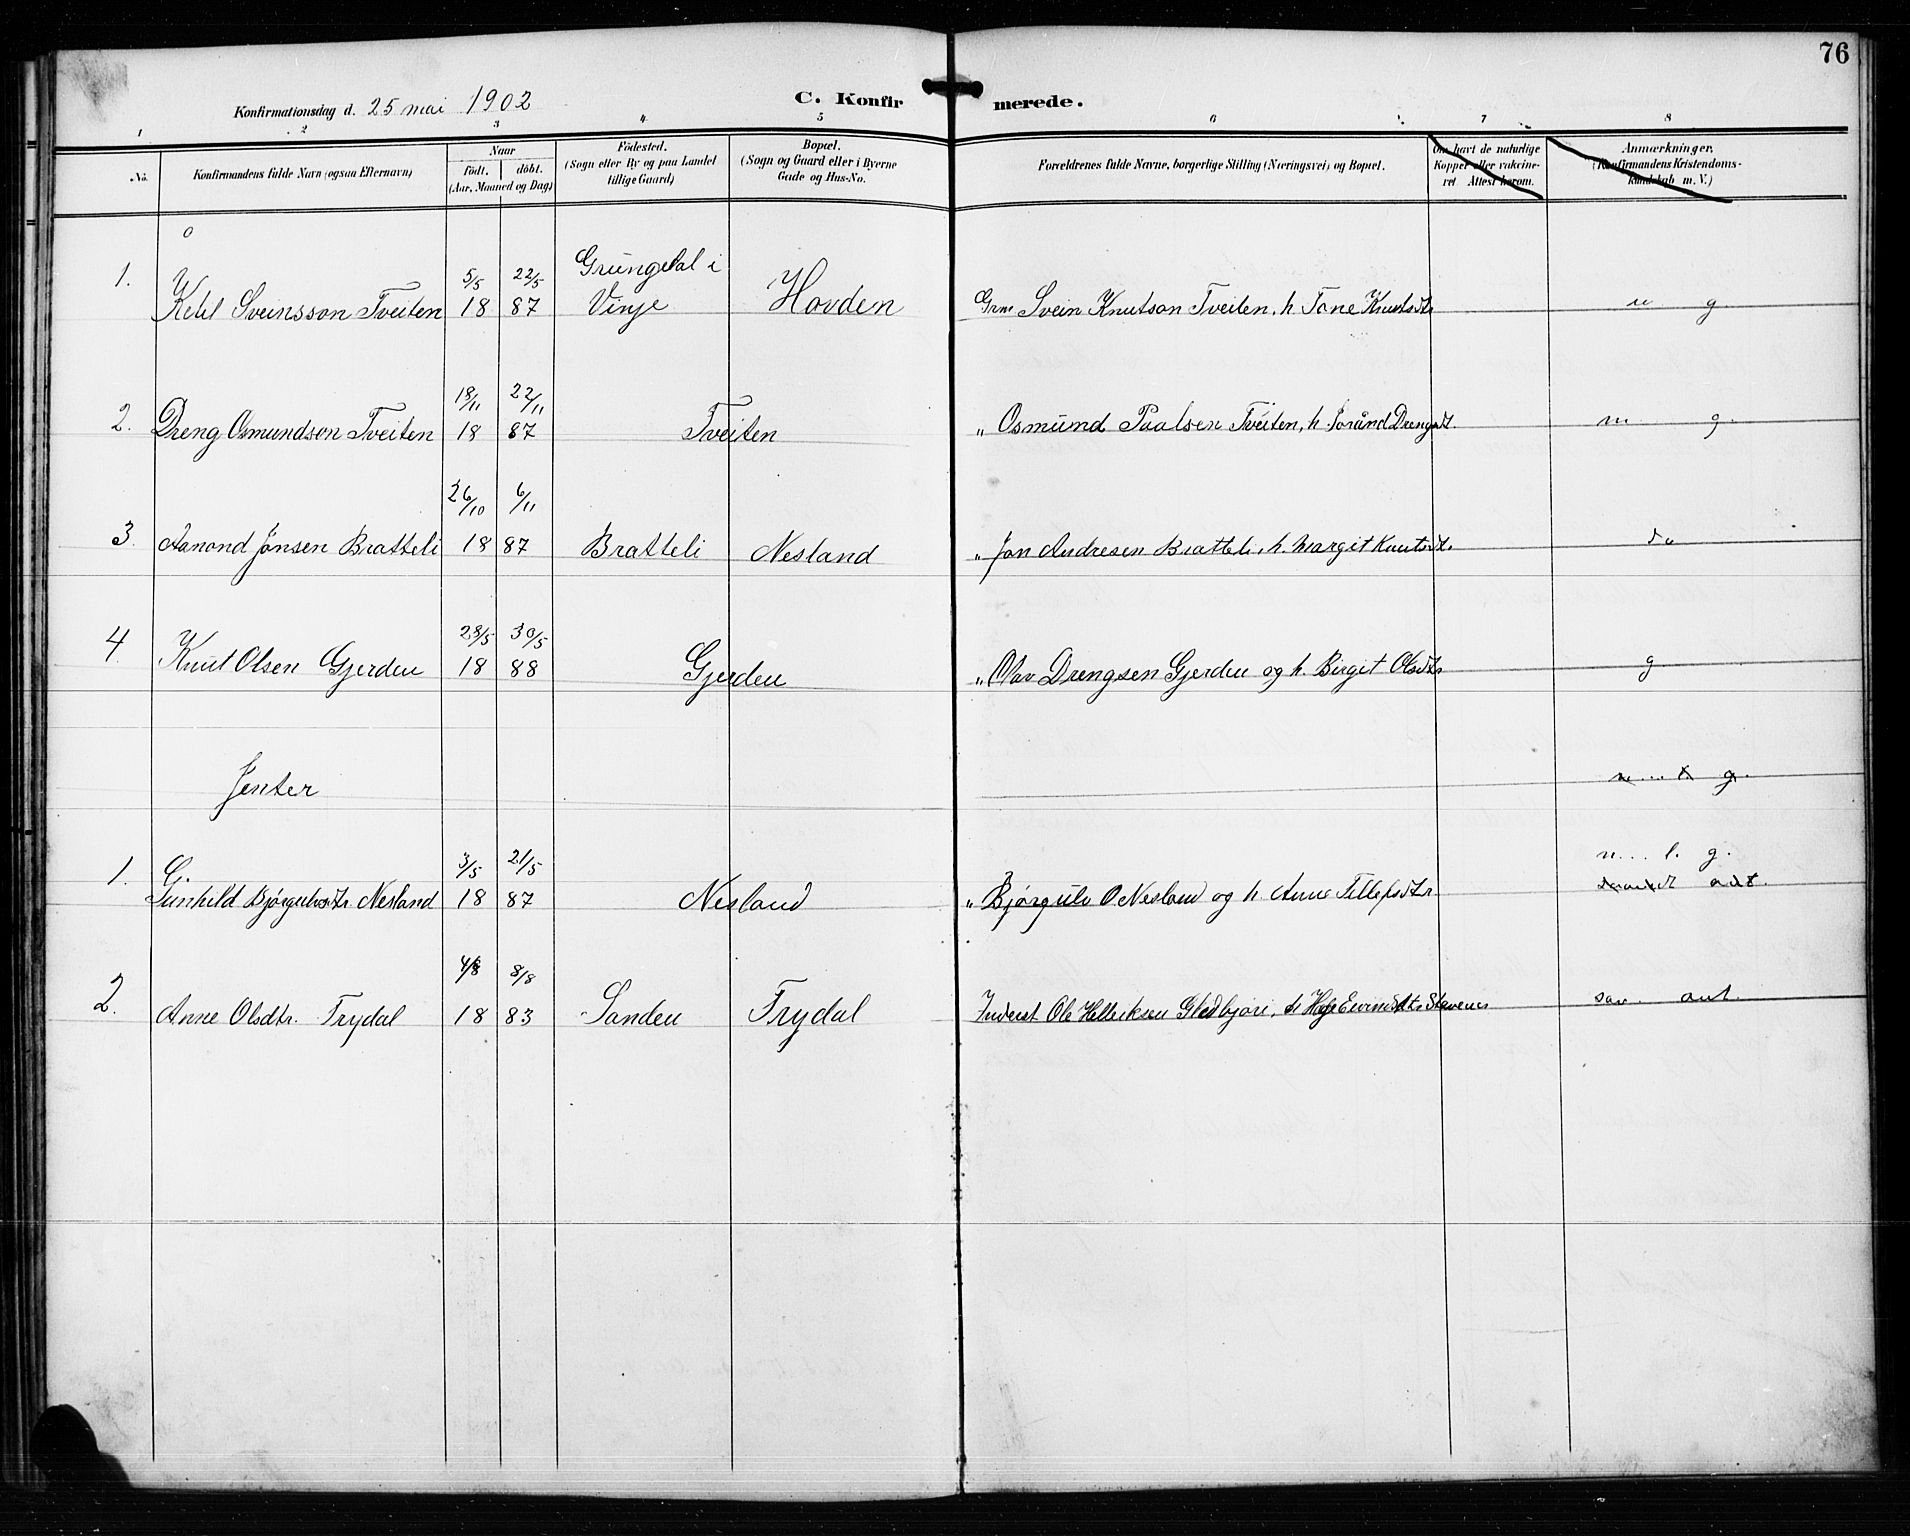 76
Konfirmationsdag d. 25 mai 1902
C. Konfirmerede.
1 2 3 4 5 6 7 8
No.
Konfirmandens fulde Navn (ogsaa Efternavn)
Naar
födt. döbt.
(Aar, Maaned og Dag)
Födested.
(Sogn eller By og paa Landet
tillige Gaard)
Bopæl.
(Sogn og Gaard eller i Byerne
Gade og Hus-No.
Forældrenes fulde Navne, borgerlige Stilling (Næringsvei) og Bopæl.
Om havt de naturlige
Kopper eller vakcine-
ret Attest herom.
Anmærkninger,
(Konfirmandens Kristendoms-
kundskab m. V.)
1. 5/5 22/5 Grungedal i
Ketil Sveinsson Tveiten 18 87 Vinje Hovden Grm Svein Knutson Tveiten, h. Tone Knutsdtr g
2. 18/11 22/11
Dreng Osmundson Tveiten 18 87 Tveiten " Osmund Paalsen Tveiten, h. Torånd Drengsdt. m g.
26/10 6/11
3. Aanond Jonsen Bratteli 18 87 Bratteli Nesland " Jon Andresen Bratteli, h. Margit Knutsdt. do
4. 28/5 30/5
Knut Olsen Gjerden 18 88 Gjerden " Olav Drengsen Gjerden og h. Birgit Olsdtr g
Jenter
1. 3/5 21/5
Gunhild Bjørgulvsdtr. Nesland 18 87 Nesland " Bjørgulv O Nesland og h. Anne Tellefsdtr
n... t. g.
2. 4/8 8/8
Anne Olsdtr. Trydal 18 83 Sanden Trydal Inderst Ole Hallviksen Glidbjørı, h. Eivindsdtr Stavenes